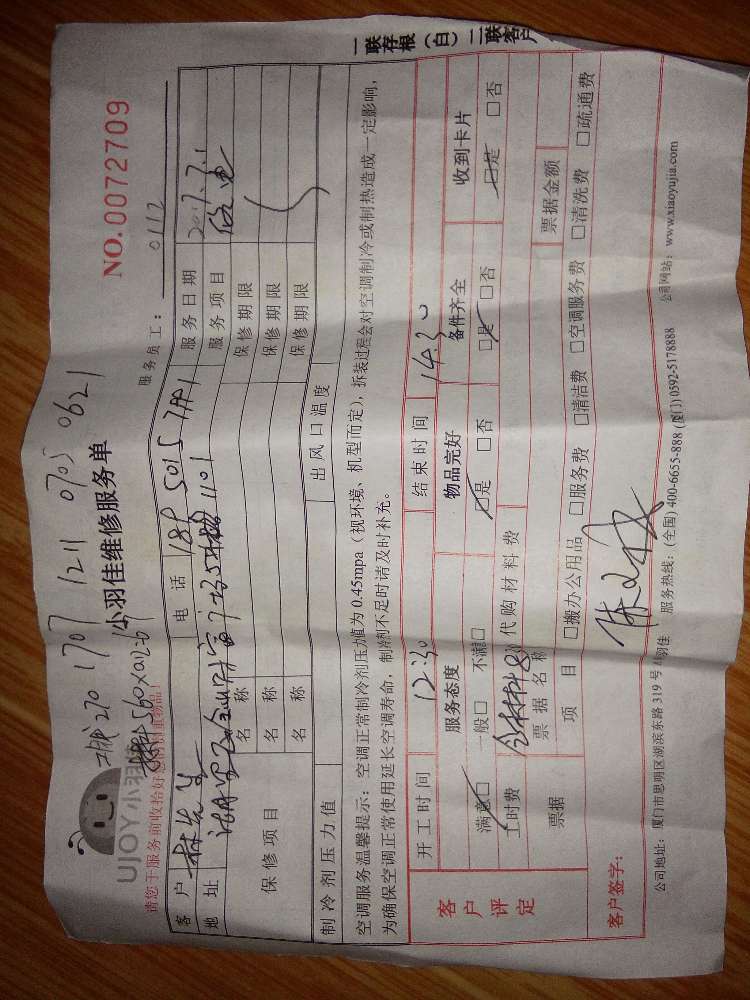 一联存根（白）二联客户
NO.0072709
工钱270 1707 1211 0705 0621
UJOY小羽佳
小羽佳维修服务单
服务员工： 0112
请您于服务前收拾好您的贵重物品！
客户 林先生 电话 189 5015 服务日期 2017.7.1
地址 1101 服务项目
保修项目 名称 保修期限
名称 保修期限
名称 保修期限
制冷剂压力值 出风口温度
空调服务温馨提示：空调正常制冷剂压力值为 0.45mpa（视环境、机型而定），拆装过程会对空调制冷或制热造成一定影响，
为确保空调正常使用延长空调寿命，制冷剂不足时请及时补充。
客户评定 开工时间 12:30 结束时间 14:30
服务态度 物品完好 备件齐全 收到卡片
满意□ 一般□ 不满□ □是 □否 □是 □否 □是 □否
工时费 代购材料费
票据 票据名称 票据金额
项目 □搬办公用品 □服务费 □清洁费 □空调服务费 □清洗费 □疏通费
客户签字：
公司地址：厦门市思明区湖滨东路 319 号 服务热线：(全国) 400-6655-888 (厦门) 0592-5178888 公司网站：www.xiaoyujia.com